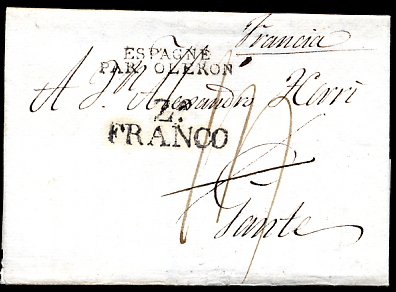 Francia
ESPAGNE
PAR OLERON
A Dn Alexandro Harri
Za
FRANCO
Nante